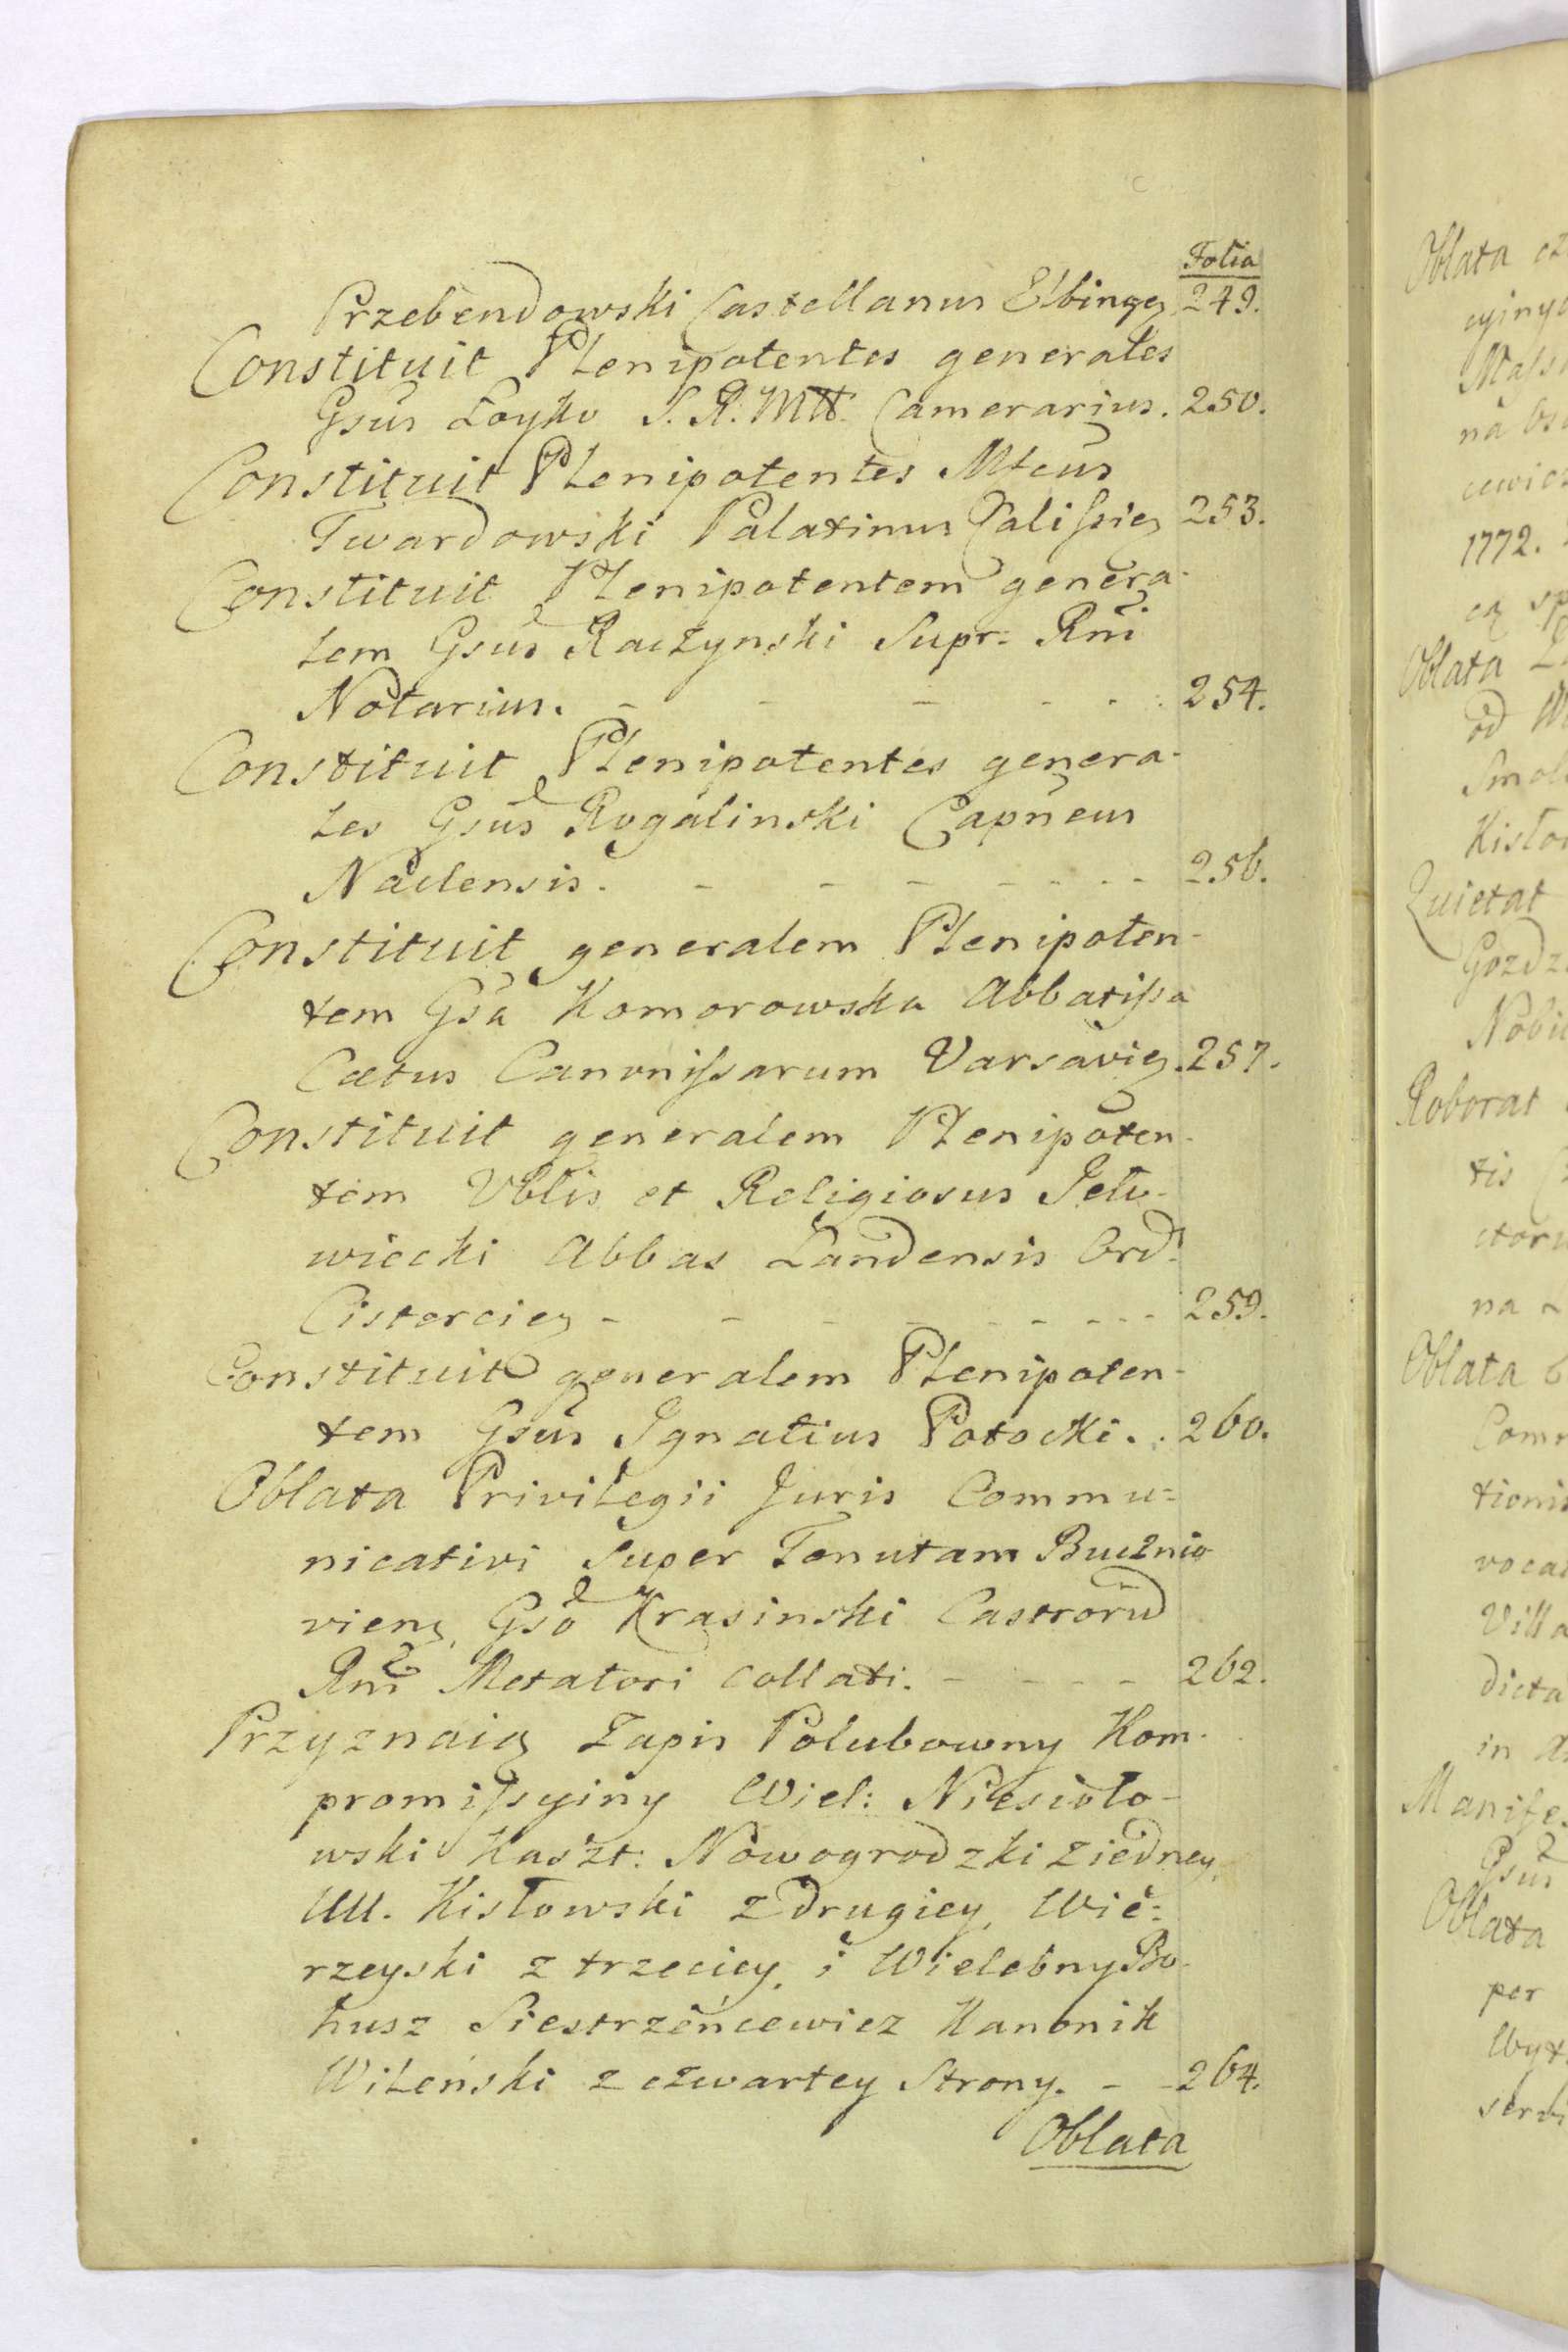 Folia
Przebendowski Castellanus Elbingen 249.
Constituit Plenipotentes generales
Gsus Łoyko S. R. Mtt. Camerarius. 250.
Constituit Plenipotentes Mfcus
Twardowski Palatinus Calissien 253.
Constituit Plenipotentem genera-
lem Gsus Raczynski Supr: Rni
Notarius. - - - - . . 254.
Constituit Plenipotentes genera-
les Gsus Rogalinski Capneus
Naclensis. - - - - - - - 256.
Constituit generalem Plenipoten-
tem Gsa Komorowska Abbatissa
Cœtus Canonissarum Varsavien. 257.
Constituit generalem Plenipoten-
tem Vblis et Religiosus Jeło-
wiecki Abbas Landensis Ord:
Cistercien - - - - - - - - 259.
Constituit generalem Plenipoten-
tem Gsus Ignatius Potocki. . 260.
Oblata Privilegii Juris Commu=
nicativi super Tenutam Bucznio
vien, Gso Krasinski Castrorū
Rni Metatori collati. - - - - 262.
Przyznaią Zapis Polubowny Kom-
promissyiny Wiel: Niesioło-
wski Kaszt: Nowogrodzki z iedney,
UU. Kisłowski z drugiey, Wie=
rzeyski z trzeciey, i Wielebny Bo-
husz Siestrzeńcewicz Kanonik
Wileński z czwartey Strony. - - 264.
Oblata
Oblata
1772.
Oblata
od
Quietat
Roborat
tis
na
Oblata
tionis
dicta
in
Gsus
Oblata
per